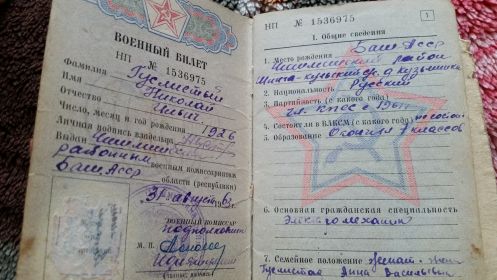 ВОЕННЫЙ БИЛЕТ
НП № 1536975
Фамилия Гуслистый
Имя Николай
Отчество Ильич
Число, месяц и год рождения 1926
Личная подпись владельца
Выдан Чишминским
районным военным комиссариатом
БашАсср области (республики)
31 августа 1963 г.
ВОЕННЫЙ КОМИССАР
подполковник
М. П.
НП № 1536975
1
I. Общие сведения
1. Место рождения БашАсср
Чишминский район
д. Кузьминка
2. Национальность Русский
3. Партийность (с какого года)
чл. КПСС с 1961
4. Состоит ли в ВЛКСМ (с какого года) не состоит
5. Образование Окончил 7 классов
6. Основная гражданская специальность
Электромеханик
7. Семейное положение женат - жена
Гуслистая Анна Васильевна